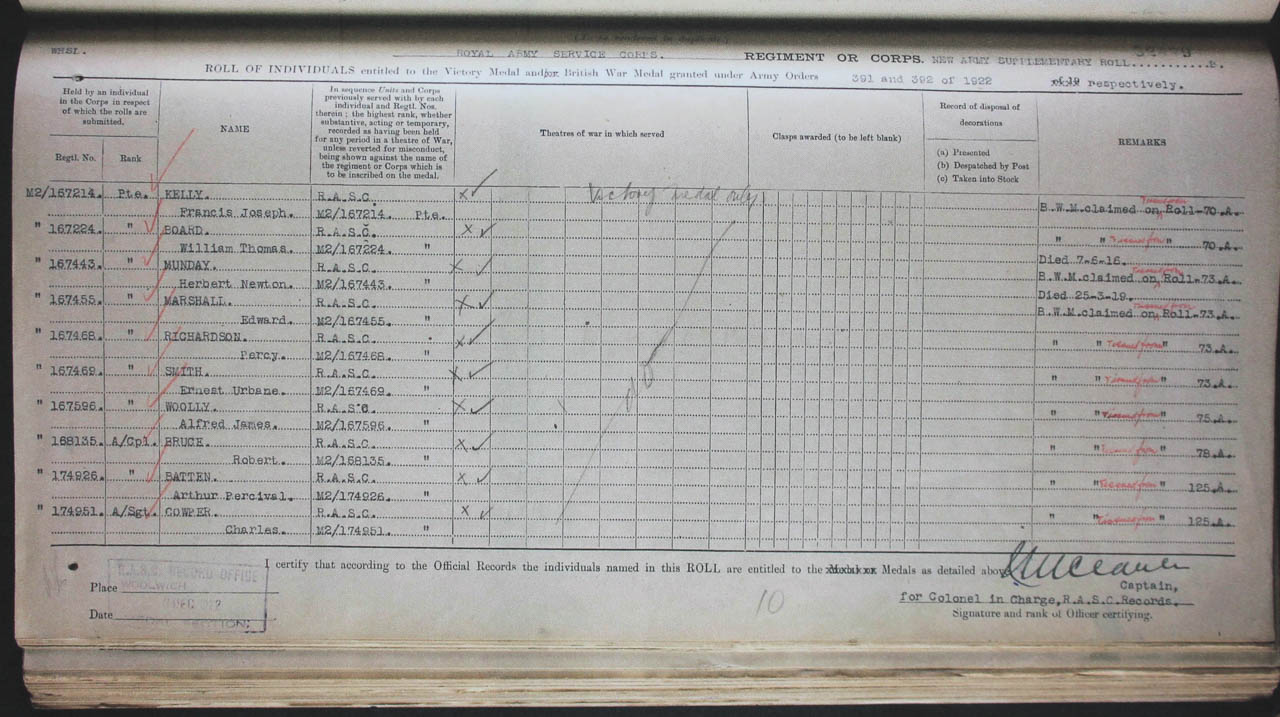 WHSL. ROYAL ARMY SERVICE CORPS. REGIMENT OR CORPS. NEW ARMY SUPPLEMENTARY ROLL...........B.
ROLL OF INDIVIDUALS entitled to the Victory Medal and/or British War Medal granted under Army Orders 391 and 392 of 1922 respectively.
Held by an individual
in the Corps in respect
of which the rolls are
submitted.
Regtl. No. Rank
NAME
In sequence Units and Corps
previously served with by each
individual and Regtl. Nos.
therein; the highest rank, whether
substantive, acting or temporary,
recorded as having been held
for any period in a theatre of War,
unless reverted for misconduct,
being shown against the name of
the regiment or Corps which is
to be inscribed on the medal.
Theatres of war in which served
Clasps awarded (to be left blank)
Record of disposal of
decorations
(a) Presented
(b) Despatched by Post
(c) Taken into Stock
REMARKS
M2/167214. Pte. KELLY. R.A.S.C. X ✓ Victory medal only
Francis Joseph. M2/167214. Pte. B.W.M.claimed on Roll-70.A.
" 167224. " BOARD. R.A.S.C. X ✓
William Thomas. M2/167224. " " " " 70.A.
" 167443. " MUNDAY. R.A.S.C. X ✓ Died 7-6-16.
Herbert Newton. M2/167443. " B.W.M.claimed on Roll-73.A.
" 167455. " MARSHALL. R.A.S.C. X ✓ Died 25-3-19.
Edward. M2/167455. " B.W.M.claimed on Roll-73.A.
" 167468. " RICHARDSON. R.A.S.C. X ✓
Percy. M2/167468. " " " " 73.A.
" 167469. " SMITH. R.A.S.C. X ✓
Ernest Urbane. M2/167469. " " " " 73.A.
" 167596. " WOOLLY. R.A.S.C. X ✓
Alfred James. M2/167596. " " " " 75.A.
" 168135. A/Cpl. BRUCE. R.A.S.C. X ✓
Robert. M2/168135. " " " " 78.A.
" 174926. " BATTEN. R.A.S.C. X ✓
Arthur Percival. M2/174926. " " " " 125.A.
" 174951. A/Sgt. COWPER. R.A.S.C. X ✓
Charles. M2/174951. " " " " 125.A.
do
I certify that according to the Official Records the individuals named in this ROLL are entitled to the Medals as detailed above
R.A.S.C. RECORD OFFICE
Place WOOLWICH
Date DEC
10
Captain,
for Colonel in Charge,R.A.S.C.Records.
Signature and rank of Officer certifying.